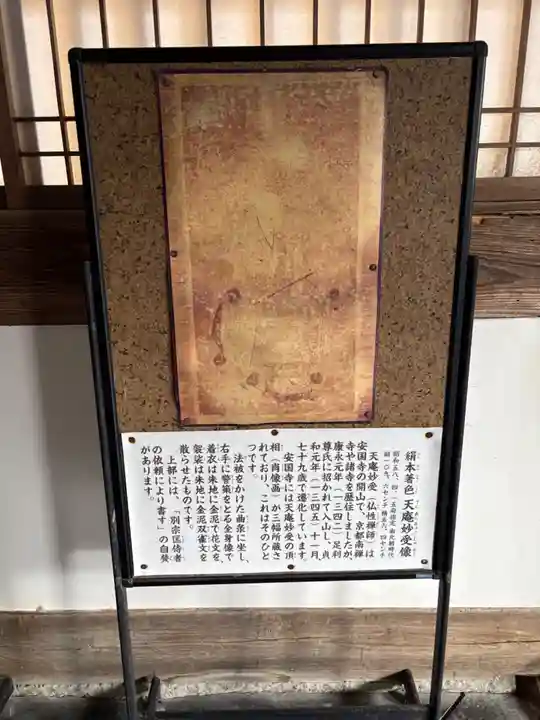 絹本著色 天庵妙受像
昭和五八、四、一五指定 南北朝時代
縦一〇九、六センチ 横五六、四センチ
天庵妙受（仏性禅師）は
安国寺の開山で、京都南禅
寺や諸寺を歴住しましたが、
康永元年（一三四二）足利
尊氏に招かれて入山し、貞
和元年（一三四五）十一月、
七十九歳で遷化しています。
安国寺には天庵妙受の頂
相（肖像画）が三幅所蔵さ
れており、これはそのひと
つです。
法被をかけた曲彔に坐し、
右手に警策をとる全身像で、
着衣は朱地に金泥で花文を、
袈裟は朱地に金泥双雀文を
散らせたものです。
上部には、「別宗匡侍者
の依頼により書す」の自賛
があります。